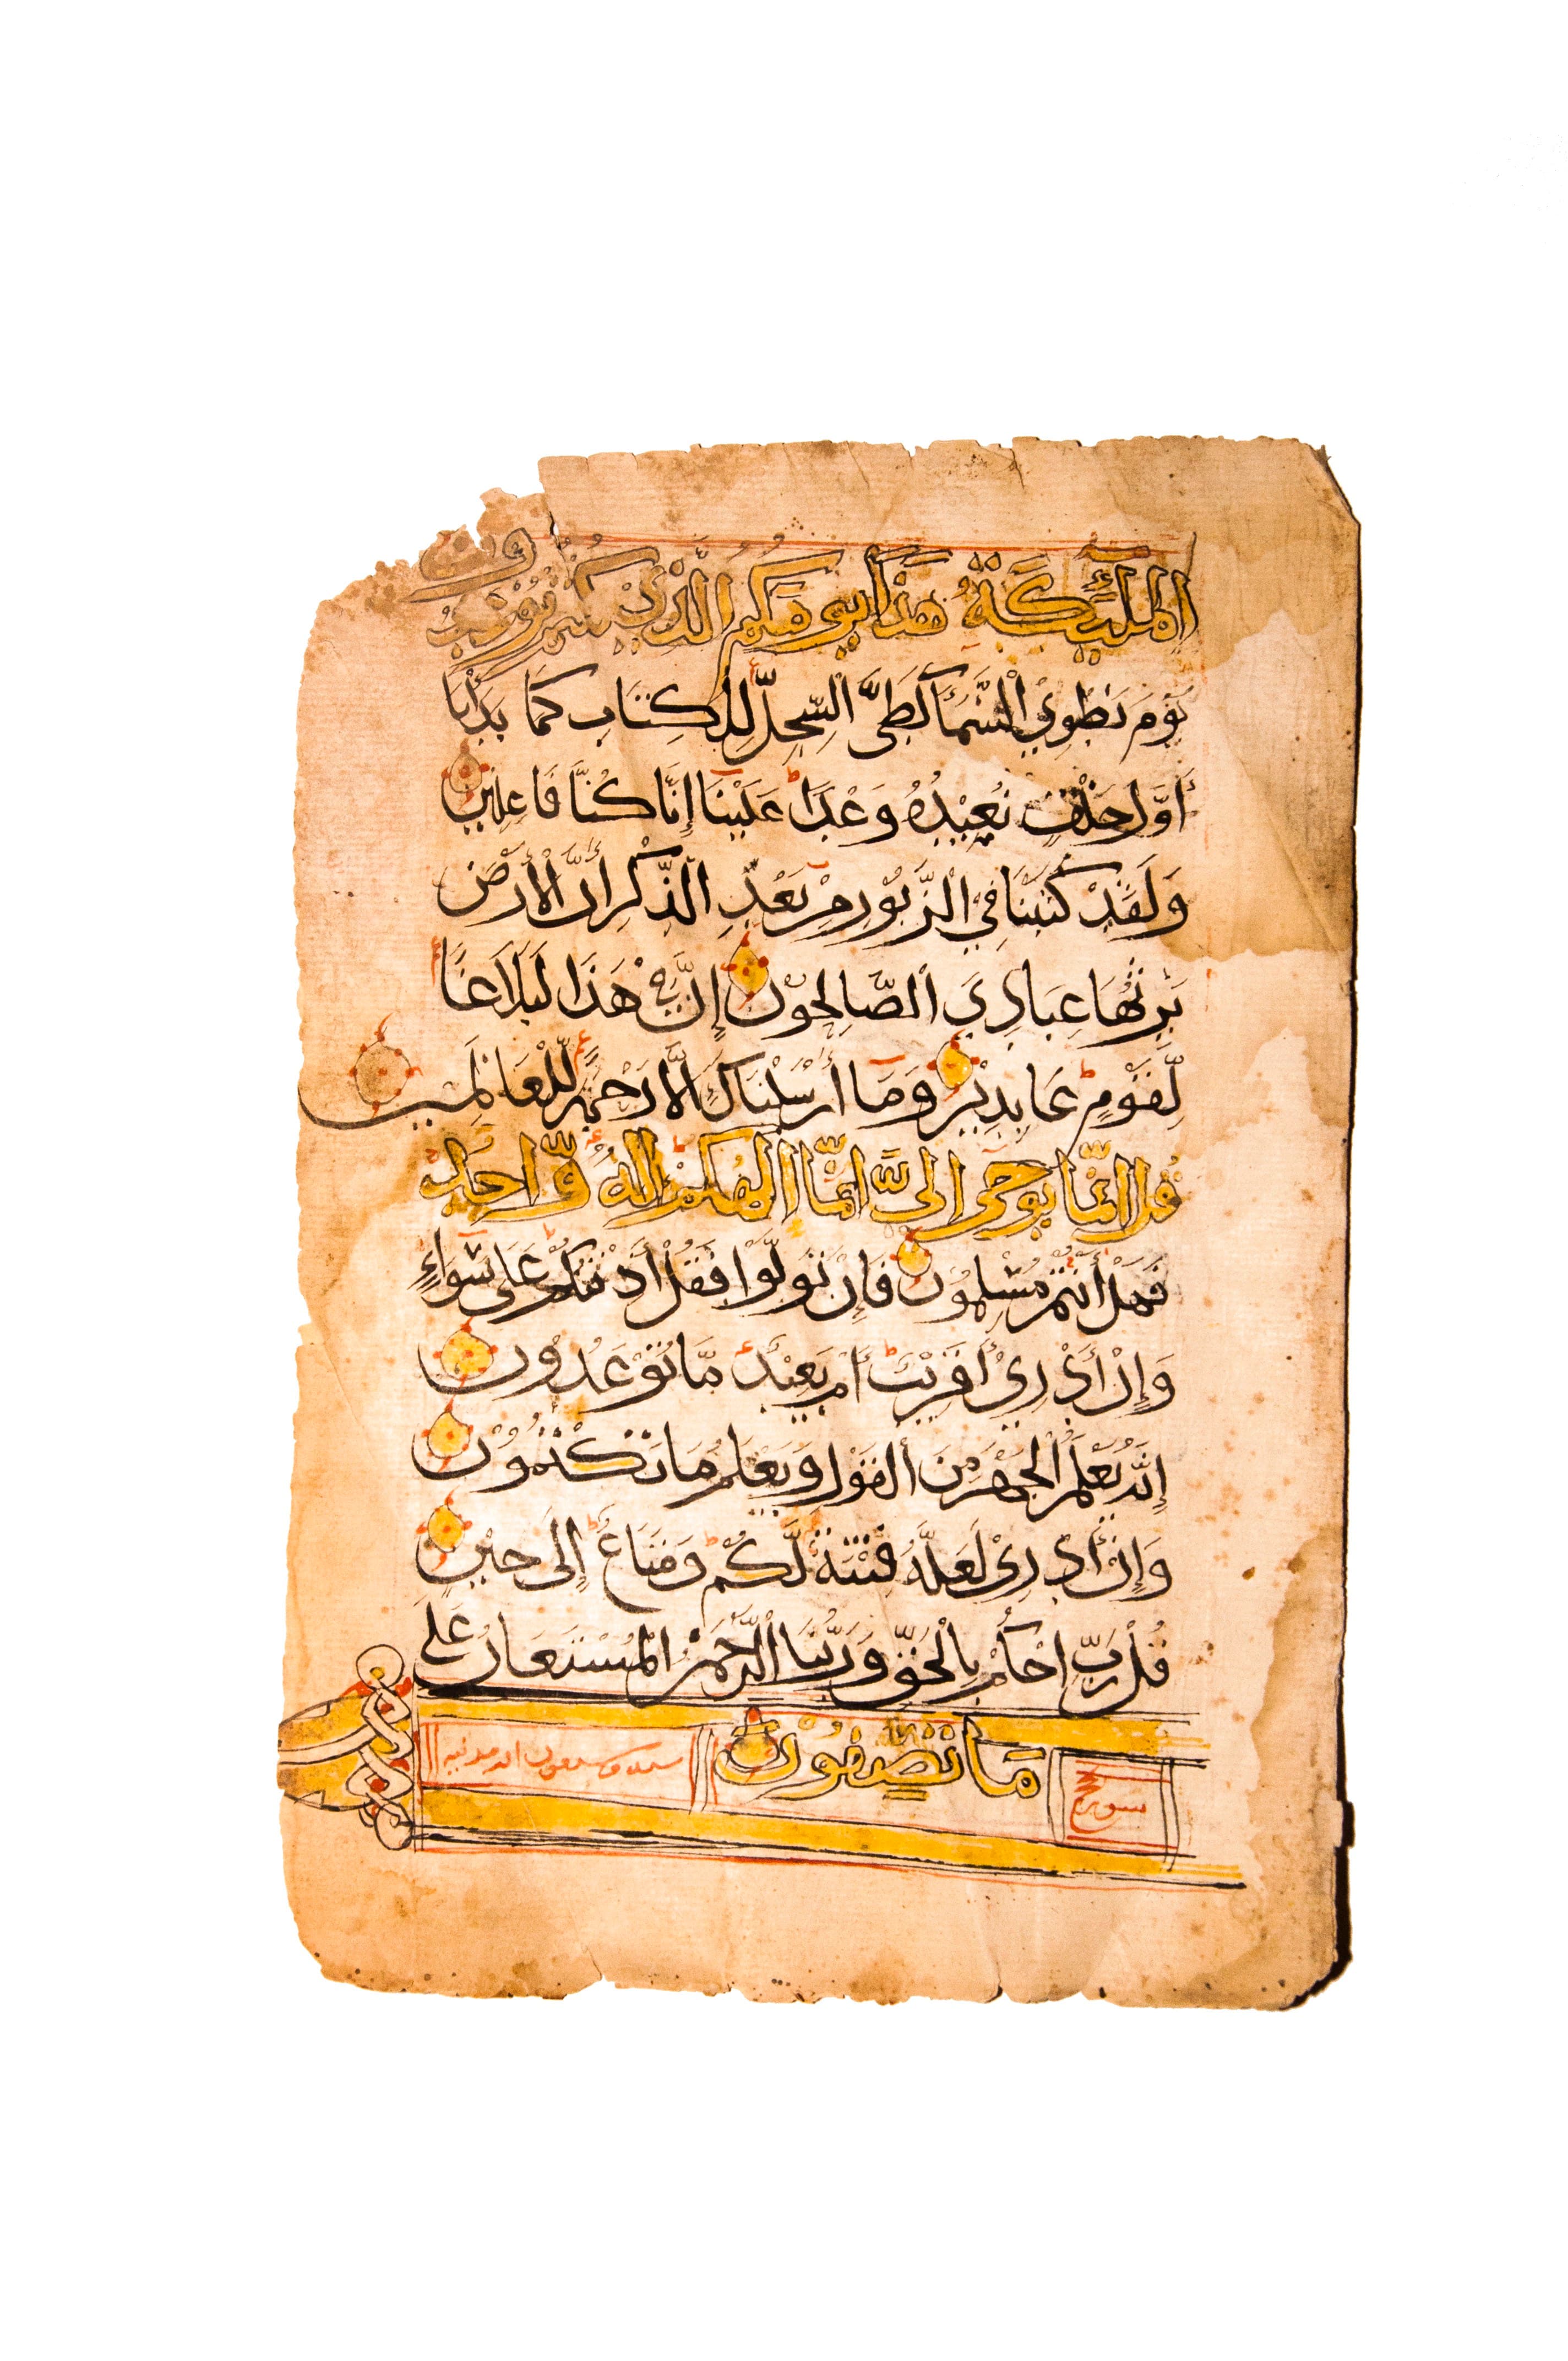 الْمَلَٰٓئِكَةُ هَٰذَا يَوْمُكُمُ الَّذِي كُنْتُمْ تُوعَدُونَ
يَوْمَ نَطْوِي السَّمَاءَ كَطَيِّ السِّجِلِّ لِلْكِتَابِ كَمَا بَدَأْنَا
أَوَّلَ خَلْقٍ نُعِيْدُهُ وَعْدًا عَلَيْنَا إِنَّا كُنَّا فَاعِلِينَ
وَلَقَدْ كَتَبْنَا فِي الزَّبُوْرِ مِنْ بَعْدِ الذِّكْرِ أَنَّ الْأَرْضَ
يَرِثُهَا عِبَادِيَ الصَّالِحُوْنَ إِنَّ فِي هَذَا لَبَلَاغًا
لِّقَوْمٍ عَابِدِيْنَ وَمَا أَرْسَلْنَاكَ إِلَّا رَحْمَةً لِّلْعَالَمِينَ
قُلْ إِنَّمَا يُوحَى إِلَيَّ أَنَّمَا إِلَهُكُمْ إِلَهٌ وَّاحِدٌ
فَهَلْ أَنْتُمْ مُسْلِمُوْنَ فَإِنْ تَوَلَّوْا فَقُلْ أَذَنْتُكُمْ عَلَى سَوَاءٍ
وَإِنْ أَدْرِيْ أَقَرِيْبٌ أَمْ بَعِيْدٌ مَّا تُوْعَدُوْنَ
إِنَّهُ يَعْلَمُ الْجَهْرَ مِنَ الْقَوْلِ وَيَعْلَمُ مَا تَكْتُمُوْنَ
وَإِنْ أَدْرِيْ لَعَلَّهُ فِتْنَةٌ لَّكُمْ وَمَتَاعٌ إِلَى حِيْنٍ
قُلْ رَبِّ احْكُمْ بِالْحَقِّ وَرَبُّنَا الرَّحْمَنُ الْمُسْتَعَانُ عَلَى
سورة مَا تَصِفُوْنَ